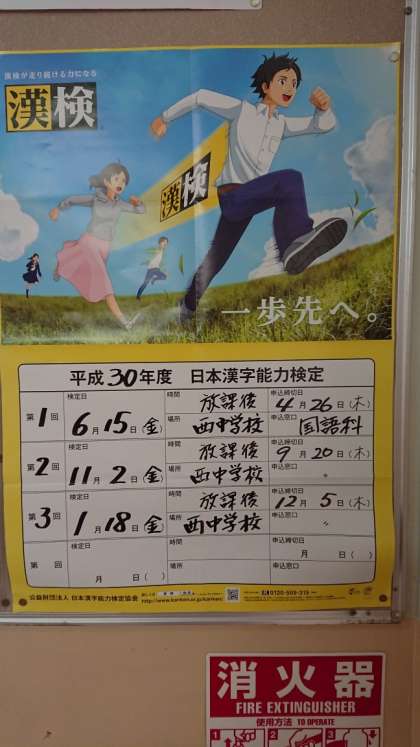 漢検が走り続ける力になる
漢検
漢検
一歩先へ。
平成30年度 日本漢字能力検定
第1回 検定日 6月15日(金) 時間 放課後 申込締切日 4月26日(木)
場所 西中学校 申込窓口 国語科
第2回 検定日 11月2日(金) 時間 放課後 申込締切日 9月20日(木)
場所 西中学校 申込窓口 〃
第3回 検定日 1月18日(金) 時間 放課後 申込締切日 12月5日(木)
場所 西中学校 申込窓口 〃
第 回 検定日 月 日( ) 時間 申込締切日 月 日( )
場所 申込窓口
公益財団法人 日本漢字能力検定協会
0120-509-315
消火器
FIRE EXTINGUISHER
使用方法 TO OPERATE
1 2 3